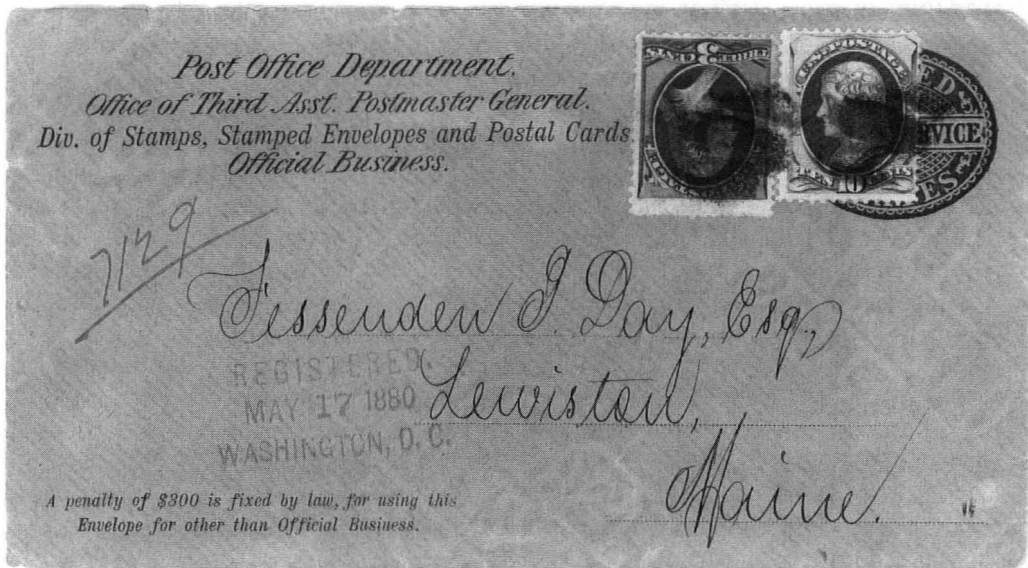 Post Office Department.
Office of Third Asst. Postmaster General.
Div. of Stamps, Stamped Envelopes and Postal Cards
Official Business.
U.S. POSTAGE
TEN 10 CENTS
ED
RVICE
ES
3
7129
Fessenden I. Day, Esq,
Lewiston,
Maine.
REGISTERED.
MAY 17 1880
WASHINGTON, D. C.
A penalty of $300 is fixed by law, for using this
Envelope for other than Official Business.